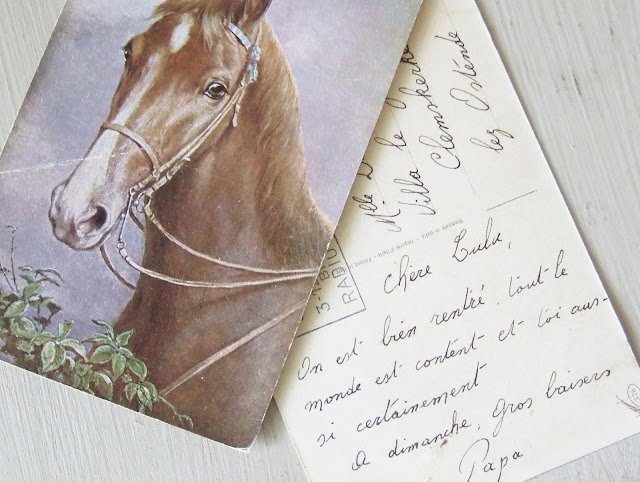 le
Villa Clemskerke
lez Ostende
Chère Lulu,
On est bien rentré, tout le
monde est content et toi aus-
si certainement
A dimanche, Gros baisers
Papa